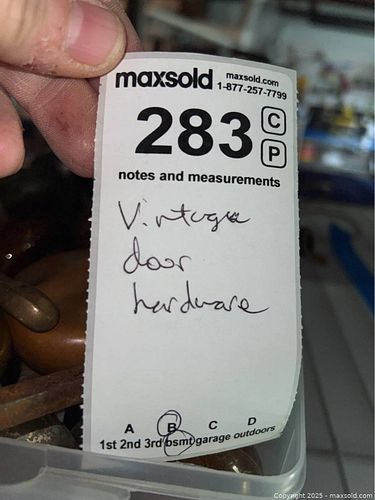 maxsold maxsold.com
1-877-257-7799
283 C
P
notes and measurements
Vintage
door
hardware
A B C D
1st 2nd 3rd bsmt garage outdoors
Copyright 2025 - maxsold.com